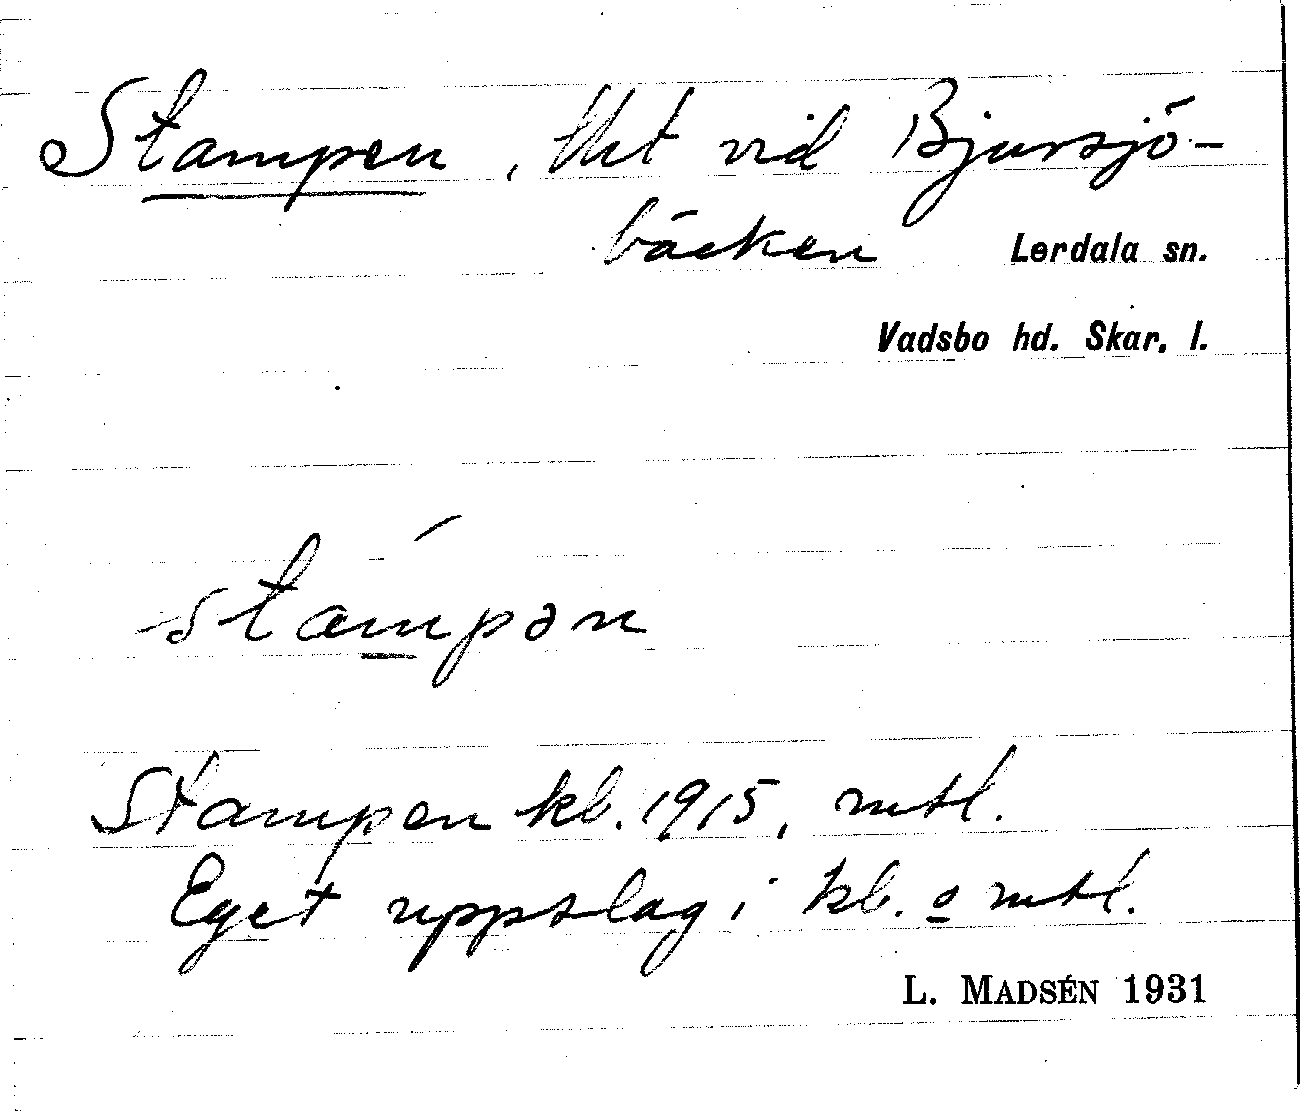 Stampen, tht vid Bjursjö-
bäcken Lerdala sn.
Vadsbo hd. Skar. l.
stámpən
Stampen kb. 1915, mtl.
Eget uppslag i kb. o mtl.
L. MADSÉN 1931